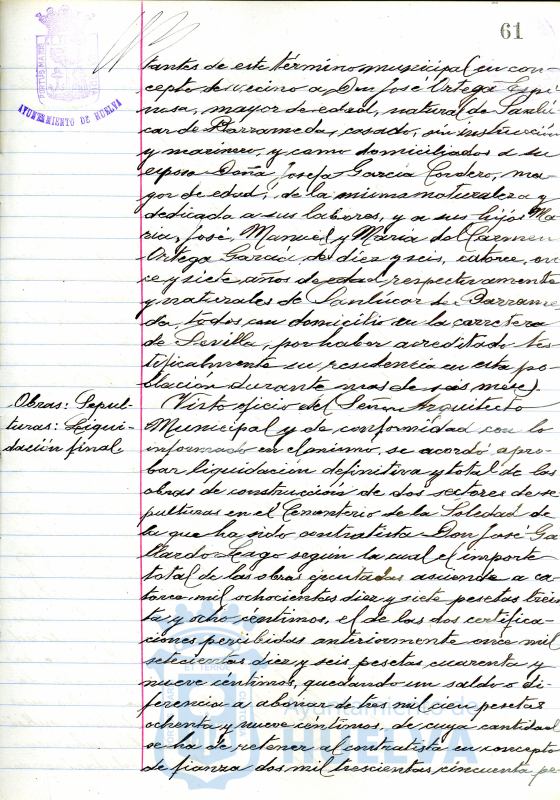 61
PORTUS MARIS
AYUNTAMIENTO DE HUELVA
tantes de este término municipal, en con-
cepto de vecino a Don José Ortega Espi-
nosa, mayor de edad, natural de Sanlú-
car de Barrameda, casado, sin instrucción
y marinero, y como domiciliados a su
esposa Doña Josefa García Cordero, ma-
yor de edad, de la misma naturaleza y
dedicada a sus labores, y a sus hijos Ma-
ria, José, Manuel y María del Carmen
Ortega García de diez y seis, catorce, on-
ce y siete años de edad respectivamente
y naturales de Sanlúcar de Barrame-
da, todos con domicilio en la carretera
de Sevilla, por haber acreditado tes-
tificalmente su residencia en esta po-
blación durante mas de seis meses.
Obras: Sepul-
turas: Liqui-
dación final.
Visto oficio del Señor Arquitecto
Municipal y de conformidad con lo
informado en el mismo, se acordó apro-
bar liquidación definitiva y total de las
obras de construcción de dos sectores de se-
pulturas en el Cementerio de la Soledad de
la que ha sido contratista Don José Ga-
llardo Lago según la cual el importe
total de las obras ejecutadas asciende a ca-
torce mil ochocientas diez y siete pesetas trein-
ta y ocho céntimos, el de las dos certifica-
ciones percibidas anteriormente once mil
setecientas diez y seis pesetas cuarenta y
nueve céntimos, quedando un saldo o di-
ferencia a abonar de tres mil cien pesetas
ochenta y nueve céntimos, de cuya cantidad
se ha de retener al contratista en concepto
de fianza dos mil trescientas cincuenta pe-
Ayuntamiento de
HUELVA